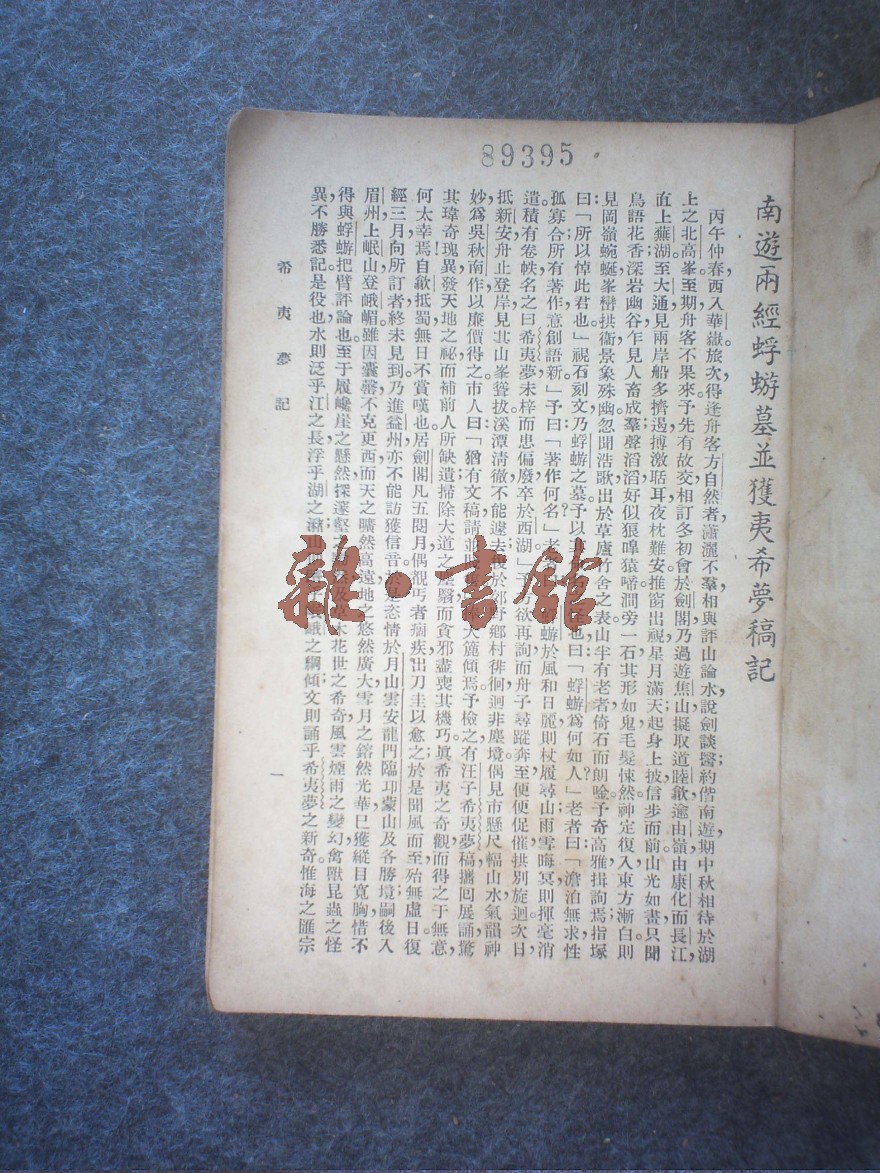 89395
南遊兩經蜉蝣墓並獲夷希夢稿記
丙午仲春，西入華嶽。旅次得逢舟客方自然者，瀟灑不羣，相與評山論水，說劍談醫；約偕南遊，期中秋相待於湖
上之北高峯。至期，舟客不果來。予先有故交相訂冬初會於劍閣，乃過遊焦山，擬取道睦歙，逾由嶺由康化而長江，
直上蕪湖。至大通，見兩岸船多擠遏，搏激聒耳，夜枕難安。推窗出視，星月滿天；起身上披，信步而前，山光如畫，只聞
鳥語花香，深岩幽谷，乍見人畜成羣，聲滔滔好似狼嘷猿啼。澗旁一石，其形如鬼，毛髮悚然。神定復入，東方漸白，則
見岡嶺蜿蜒，峯巒拱衞，景象殊幽。忽聞浩歌出於草廬竹舍之表，山半有老者，倚石而朗唫。予奇高雅，揖詢焉；指塚
曰：「所以悼此君也」視石刻文，乃蜉蝣之墓。予以
也曰：「蜉蝣爲何如人？」老者曰：「澹泊無求，性
孤寡合，所有著作，意創語新」予曰：「著作何名？」老
蝣於風和日麗，則杖履尋山，雨雪晦冥，則揮毫消
遣。積有卷帙，名之曰希夷夢，未梓而患偏廢，卒於西湖」予方欲再詢，而舟子尋蹤奔至，便便促催，拱別旋迴。次日，
抵新安，舟止登岸，見其山峯聳拔，溪潭清徹，不能遽去
於郊野鄉村徘徊，迴非塵境。偶見市懸尺幅山水，氣韻神
妙，爲吳秋南作，以廉價得之。市人曰：「猶有文稿，請並
大簏傾焉。予檢之，有汪子希夷夢稿，攜囘展誦，驚
其瑋奇瑰異，發天地之祕，而補前人所缺遺；掃除大道之
翳，而貪邪盡喪其機巧。眞希夷之奇觀，而得之于無意，
何太幸焉！自歙抵蜀，無日不賞嘆也。居劍閣凡五閱月，偶覩丐者痼疾，出刀圭以愈之，於是聞風而至，殆無虛日。復
經三月，向所訂者，終未見到。乃進益州，亦不能訪獲信音。於是恣情於月山雲安龍門臨邛蒙山及各勝境；嗣後入
眉州，上岷山，登峨嵋。雖因囊罄，不克更西，而天之曠然高遠，地之悠然廣大，雪月之鎔然光華，已獲縱目寬胸，惜不
得與蜉蝣把臂評論也。至于履巉崖之懸然，探邃壑
木花世之希奇，風雲煙雨之變幻，禽獸昆蟲之怪
異，不勝悉記。是役也，水則泛乎江之長，浮乎湖之
之綱傾；文則誦乎希夷夢之新奇。惟海之匯宗
希夷夢　記
一
雜·書館